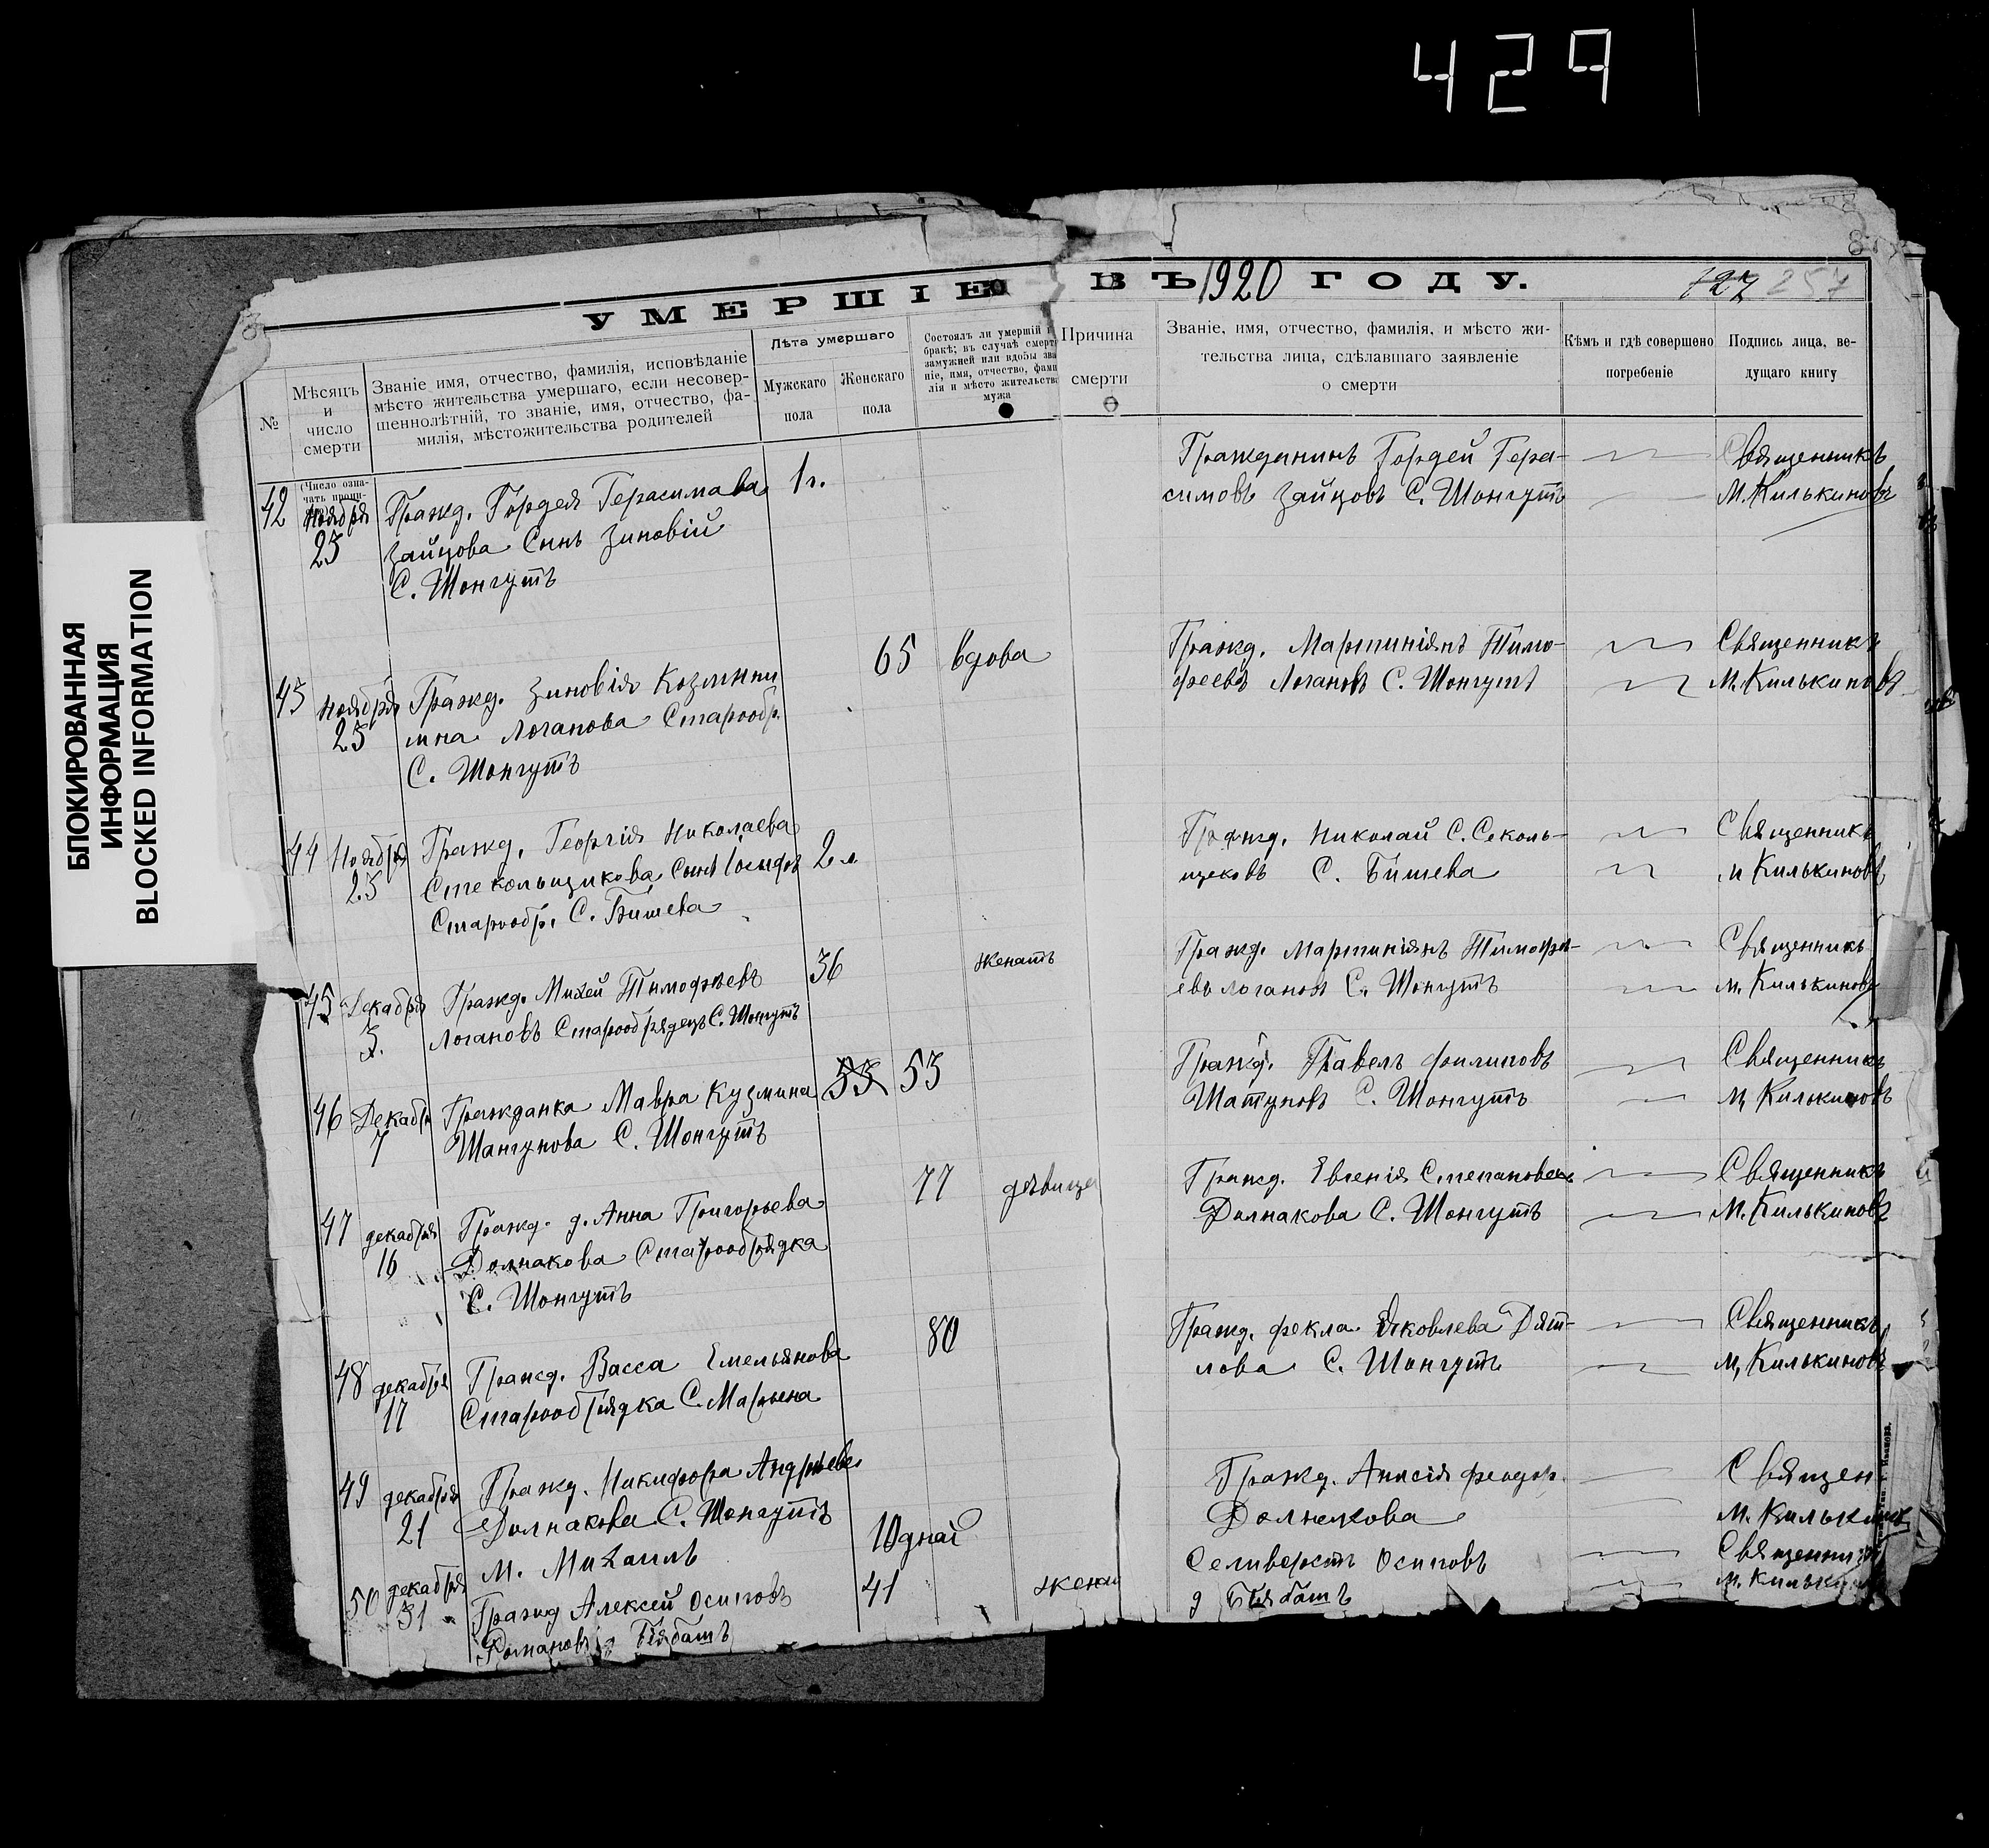 429
БПОКИРОВАННАЯ
ИНФОРМАЦИЯ
BLOCKED INFORMATION
УМЕРШІЕ ВЪ 1920 ГОДУ.
127 257
№
Мѣсяцъ
и
число
смерти
Званіе имя, отчество, фамилія, исповѣданіе
мѣсто жительства умершаго, если несовер-
шеннолѣтній, то званіе, имя, отчество, фа-
милія, мѣстожительства родителей
Лѣта умершаго
Мужскаго
пола
Женскаго
пола
Состоялъ ли умершій
бракѣ; въ случаѣ смерт
замужней или вдовы зва
ніе, имя, отчество, фами
лія и мѣсто жительства
мужа
Причина
смерти
Званіе, имя, отчество, фамилія, и мѣсто жи-
тельства лица, сдѣлавшаго заявленіе
о смерти
Кѣмъ и гдѣ совершено
погребеніе
Подпись лица, ве-
дущаго книгу
42 Ноября
25
Гражд. Гордея Герасимова
Зайцова Сынъ Зиновій
С. Шонгутъ
1 г.
Гражданинъ Гордей Гера-
симовъ Зайцовъ С. Шонгутъ
Священникъ
М. Килькиновъ
43 Ноября
25
Гражд. Зиновія Козмини
шна Логанова Старообр.
С. Шонгутъ
65
вдова
Гражд. Мартиніянъ Тимо-
феевъ Логановъ С. Шонгутъ
Священникъ
М. Килькиновъ
44 Ноября
25
Гражд. Георгія Николаева
Стекольщикова Сынъ Іосифъ
Старообр. С. Бишева
2 л
Гражд. Николай С. Секоль-
щековъ С. Бишева
Священникъ
М Килькиновъ
45 Декабря
3.
Гражд. Михей Тимофѣевъ
Логановъ Старообрядецъ С. Шонгутъ
36
женатъ
Гражд. Мартиніянъ Тимофе-
евъ Логановъ С. Шонгутъ
Священникъ
М. Килькиновъ
46 Декабр
7
Гражданка Мавра Кузмина
Шангунова С. Шонгутъ
53 53
Гражд. Павелъ Филиповъ
Шатуновъ С. Шонгутъ
Священникъ
М. Килькиновъ
47 декабря
16
Гражд. д. Анна Григорьева
Долнакова Старообрядка
С. Шонгутъ
77
дѣвица
Гражд. Евгенія Степановна
Долнакова С. Шонгутъ
Священникъ
М. Килькиновъ
48 декабря
17
Гражд. Васса Емельянова
Старообрядка С. Марьена
80
Гражд. Фекла Яковлева Дят-
лова С. Шонгутъ
Священникъ
М. Килькиновъ
49 декабря
21
Гражд. Никифора Андрѣева
Долнакова С. Шонгутъ
М. Михаилъ
10 дней
Гражд. Анисія Феодор.
Долнекова
Священ
М. Килькинов
50 декабря
31
Гражд Алексей Осиповъ
Романовъ д Біябашъ
41
жена
Селиверстъ Осиповъ
д Біябашъ
Священник
М. Кильки